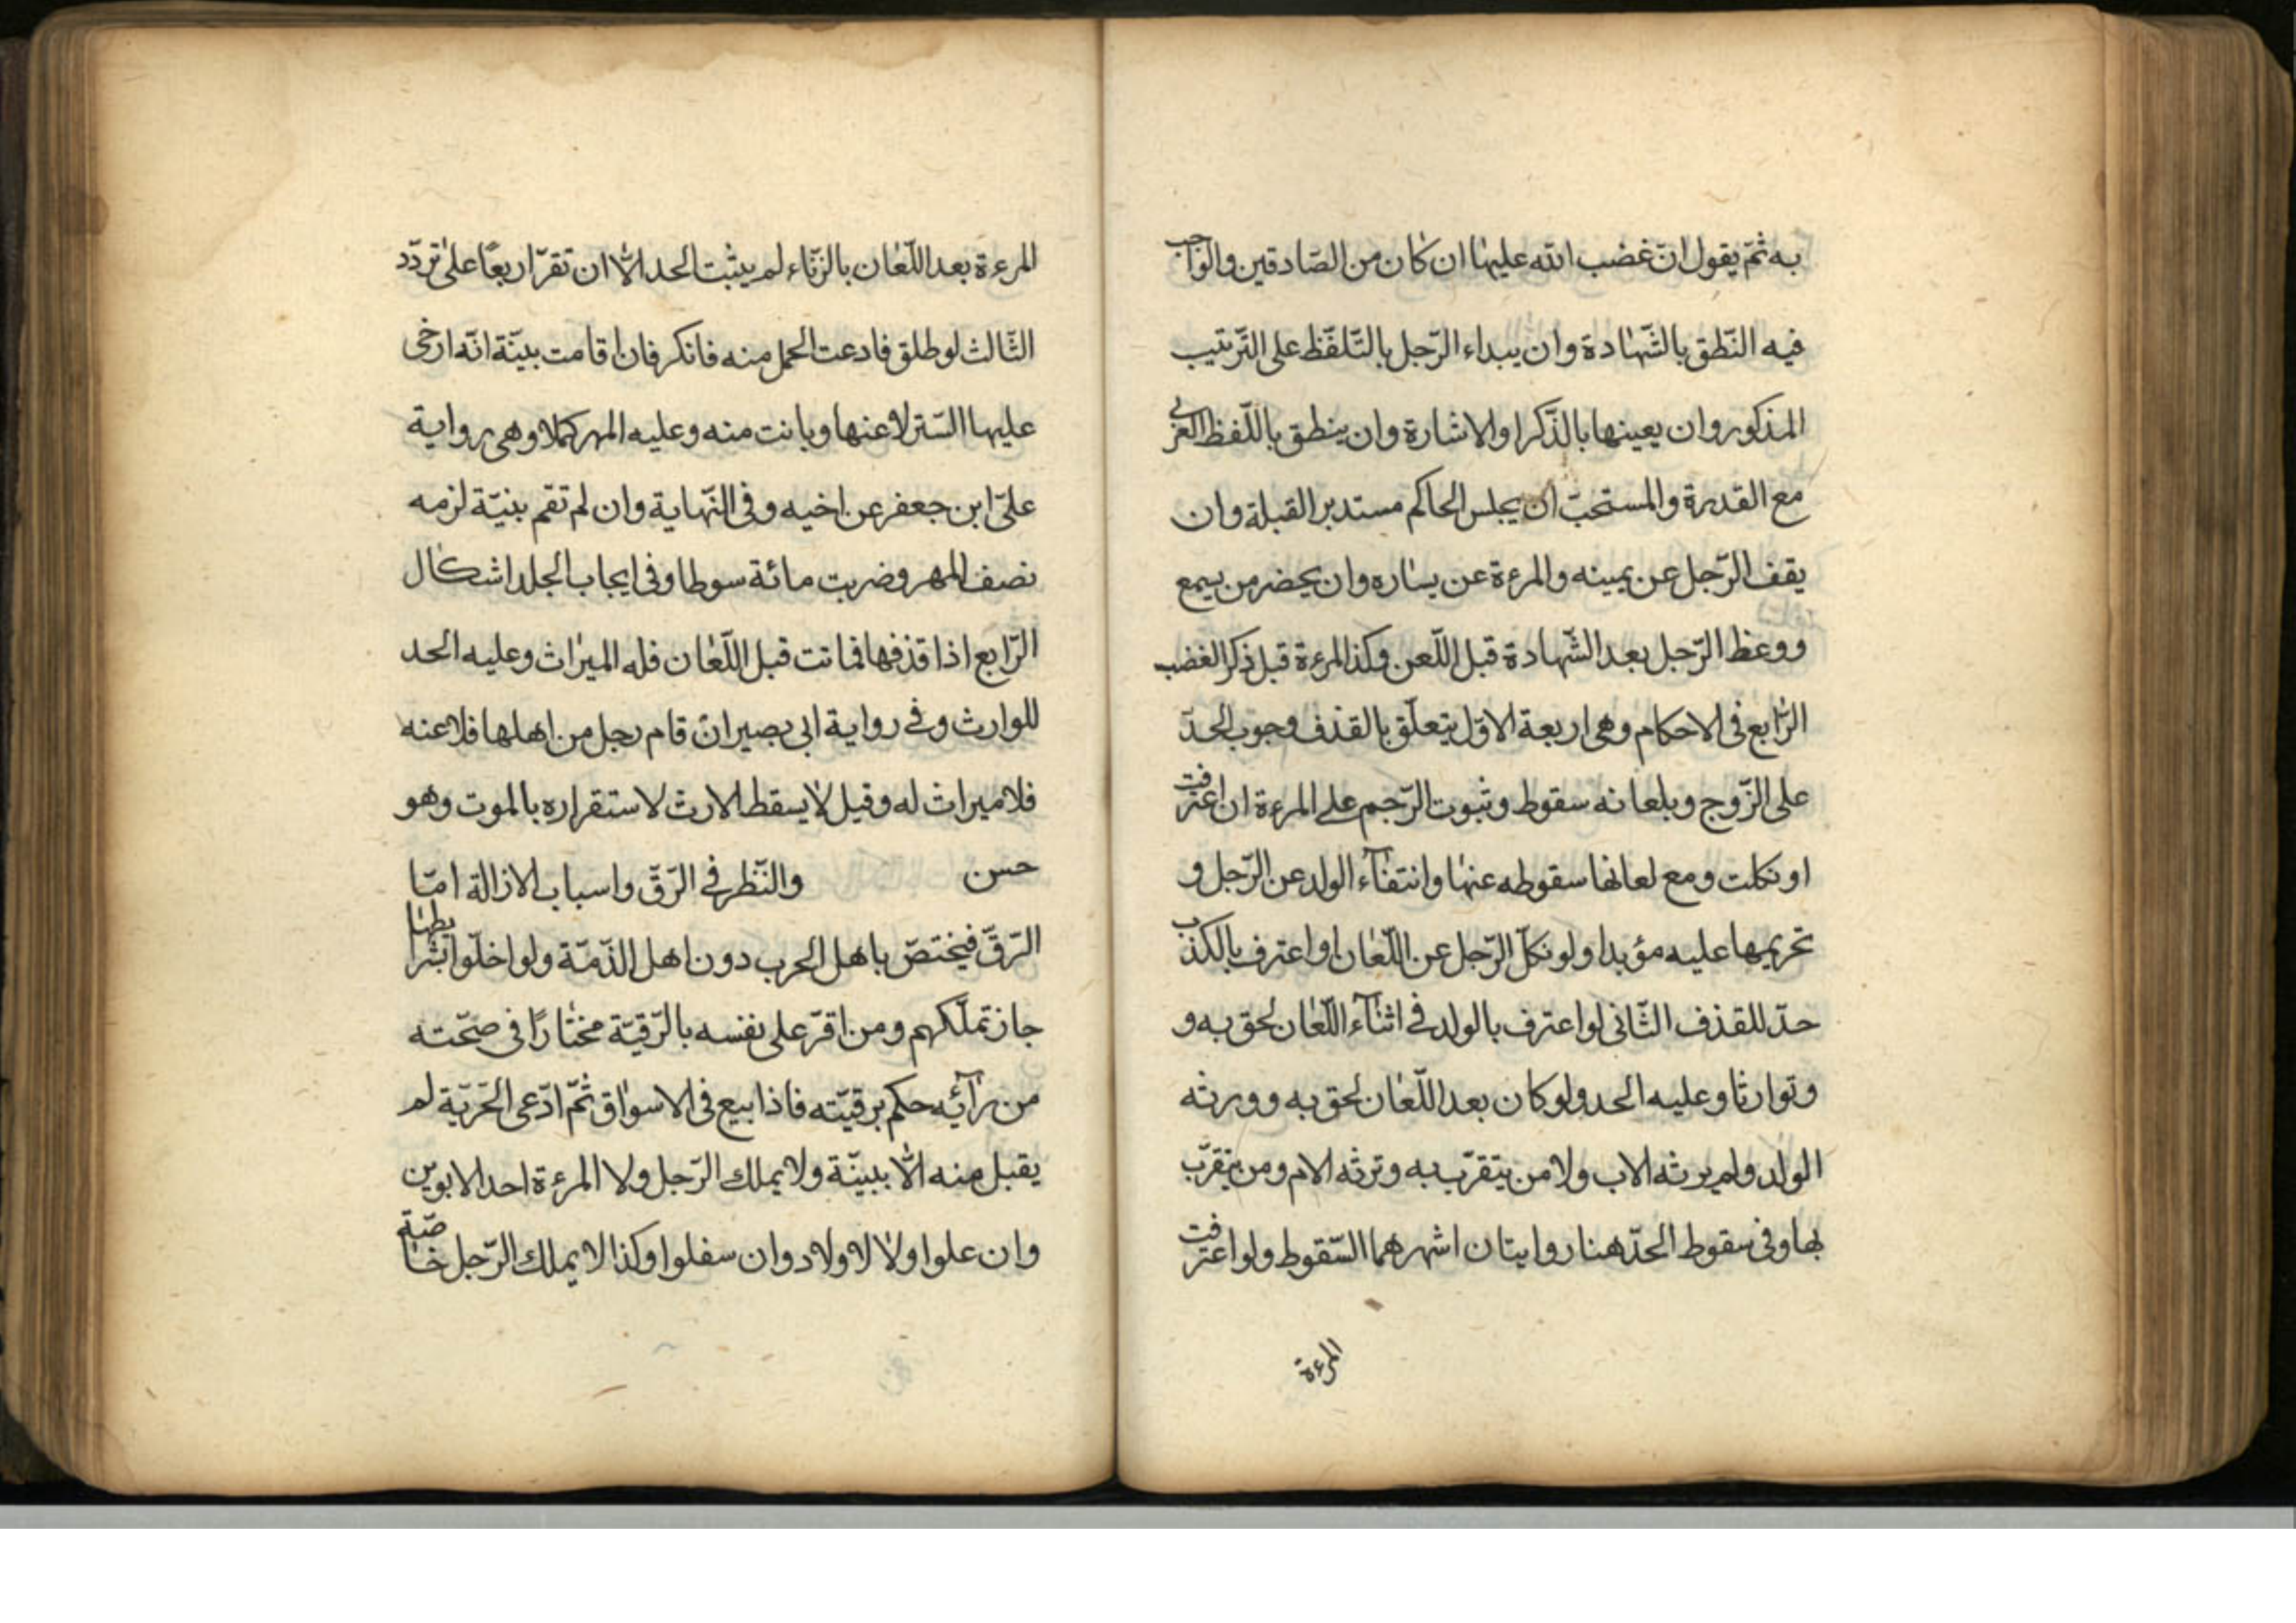 به ثمّ يقول انّ غضب الله عليها ان كان من الصّادقين والواجب
فيه النّطق بالشّهادة وان يبداء الرّجل بالتّلفّظ على التّرتيب
المذكور وان يعينها بالذّكر او الاشارة وان ينطق باللّفظ العربي
مع القدرة والمستحبّ ان يجلس الحاكم مستدبر القبلة وان
يقف الرّجل عن يمينه والمرءة عن يساره وان يحضر من يسمع
ووعظ الرّجل بعد الشّهادة قبل اللّعن وكذا المرءة قبل ذكر الغضب
الرّابع فى الاحكام وهى اربعة الاوّل يتعلّق بالقذف وجوب الحدّ
على الزّوج وبلعانه سقوط وثبوت الرّجم على المرءة ان اعترفت
او نكلت ومع لعانها سقوطه عنها وانتفآء الولد عن الرّجل و
تحريمها عليه مؤبدا ولو نكل الرّجل عن اللّعان او اعترف بالكذب
حدّ للقذف الثّانى لو اعترف بالولد فى اثنآء اللّعان لحق به و
وتوارثا وعليه الحد ولو كان بعد اللّعان لحق به وورثه
الولد ولم يرثه الاب ولا من يتقرّب به وترثه الام ومن يتقرّب
بها وفى سقوط الحدّ هنا روايتان اشهرهما السّقوط ولو اعترفت
المرءة
المرءة بعد اللّعان بالزّناء لم يثبت الحد الّا ان تقرّ اربعًا على تردّد
الثّالث لو طلق فادعت الحمل منه فانكر فان اقامت بيّنة انّه ارخى
عليها السّتر لاعنها وبانت منه وعليه المهر كملا وهى رواية
علىّ ابن جعفر عن اخيه وفى النّهاية وان لم تقم بنيّة لزمه
نصف المهر وضربت مائة سوطا وفى ايجاب الجلد اشكال
الرّابع اذا قذفها فماتت قبل اللّعان فله الميراث وعليه الحد
للوارث وفى رواية ابى بصير ان قام رجل من اهلها فلاعنه
فلا ميراث له وقيل لا يسقط الارث لاستقراره بالموت وهو
حسن والنّظر فى الرّقّ واسباب الازالة امّا
الرّقّ فيختصّ باهل الحرب دون اهل الذّمّة ولو اخلّوا بشرائطها
جاز تملّكهم ومن اقرّ على نفسه بالرّقيّة مختارًا فى صحّته
من رآئه حكم برقيّته فاذا بيع فى الاسواق ثمّ ادّعى الحرّيّة لم
يقبل منه الّا ببيّنة ولا يملك الرّجل ولا المرءة احد الابوين
وان علوا ولا لاولاد وان سفلوا وكذا لا يملك الرّجل خاصّة